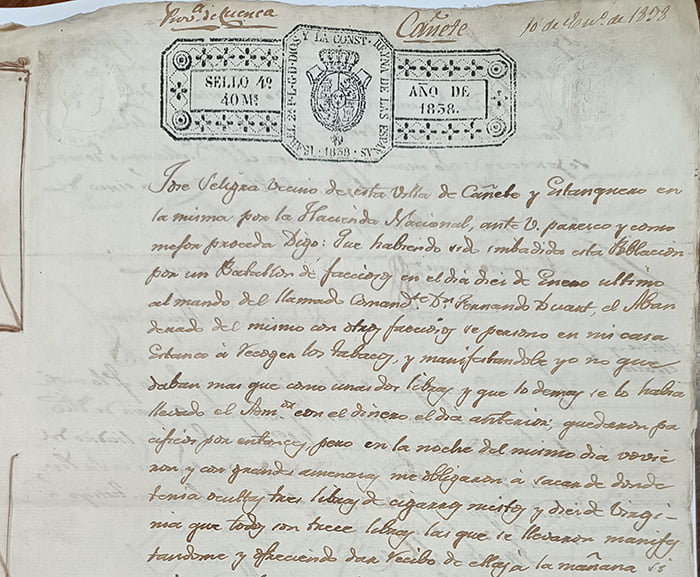 Prov.ª de Cuenca Cañete 10 de En.º de 1838
SELLO 4º
40 Ms
ISABEL 2ª P. L. G. D. DIOS Y LA CONST. REINA DE LAS ESPAÑAS
1838
AÑO DE
1838.
Jose vecino de esta Villa de Cañete y Estanquero en
la misma por la Hacienda Nacional, ante V. paresco y como
mejor proceda Digo: Que habiendo sido imbadida esta Poblacion
por un Batallon de facciosos en el dia diez de Enero ultimo
al mando del llamado Comand.te Dn Fernando Duart, el Aban
derado del mismo con otros facciosos se persono en mi casa
Estanco á recoger los tabacos, y manifestandole yo no que
daban mas que como unas dos libras y que lo demas se lo habia
llevado el Adm.or con el dinero el dia anterior; quedaron pa
cificos por entonces, pero en la noche del mismo dia vovie
ron y con grandes amenazas me obligaron á sacar de donde
tenia ocultas tres libras de cigarros mistos y diez de Virgi
nia que todas son trece libras, las que se llevaron manifes
tandome y ofreciendo dar recibo de ellas á la mañana si